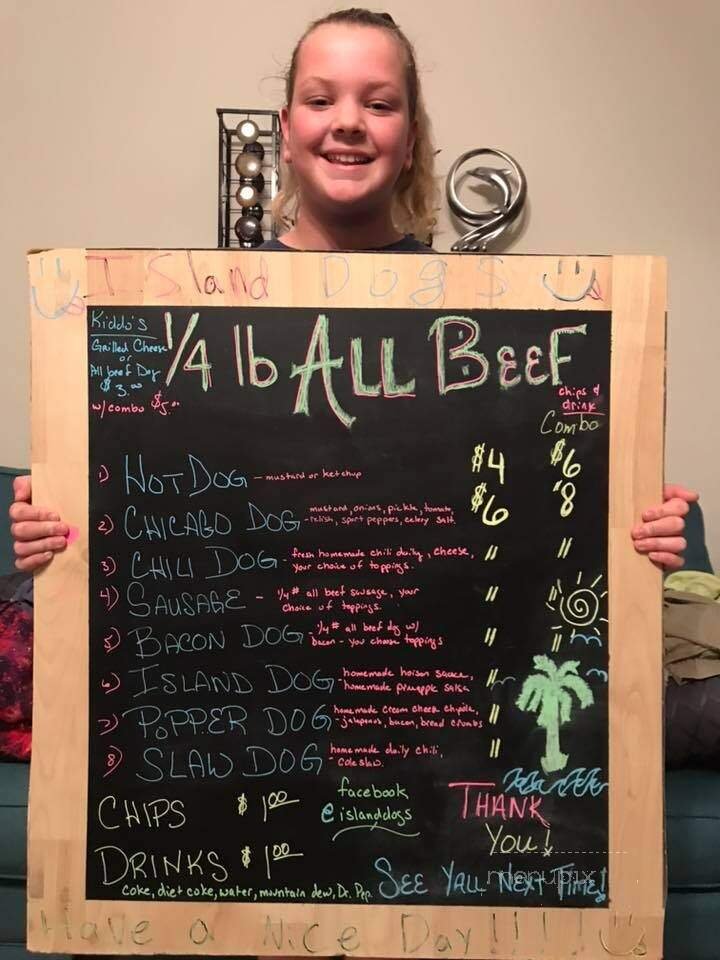 Island Dogs
Kiddo's
Grilled Cheese
or
All beef Dog
$3.00
w/ combo $5.00
1/4 lb ALL BEEF
chips &
drink
Combo
1) HOT DOG - mustard or ketchup $4 $6
2) CHICAGO DOG - mustard, onions, pickle, tomato, $6 $8
relish, sport peppers, celery salt.
3) CHILI DOG - fresh homemade chili daily, cheese, " "
your choice of toppings.
4) SAUSAGE - 1/4# all beef sausage, your " "
choice of toppings.
5) BACON DOG - 1/4# all beef dog w/ " "
bacon - you choose toppings
6) ISLAND DOG - homemade hoison sauce, "
homemade pineapple salsa
7) POPPER DOG - homemade cream cheese chipotle, "
jalapenos, bacon, bread crumbs
8) SLAW DOG - homemade daily chili, "
coleslaw.
CHIPS $1.00
facebook
@islanddogs
THANK
You!
DRINKS $1.00
coke, diet coke, water, mountain dew, Dr. Pep.
SEE YALL NEXT TIME!
menupix
Have a Nice Day!!!!!